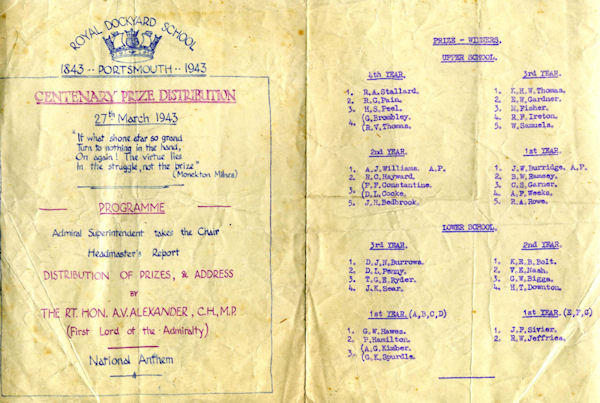 ROYAL DOCKYARD SCHOOL
1843 -- PORTSMOUTH -- 1943
CENTENARY PRIZE DISTRIBUTION
27th March 1943
"If what shone afar so grand
Turn to nothing in the hand,
On again! The virtue lies
In the struggle, not the prize"
(Monckton Milnes)
PROGRAMME
Admiral Superintendent takes the Chair
Headmaster's Report
DISTRIBUTION OF PRIZES, & ADDRESS
BY
THE RT. HON. A.V. ALEXANDER, C.H., M.P.
(First Lord of the Admiralty)
National Anthem
PRIZE - WINNERS.
UPPER SCHOOL.
4th YEAR.
1. R.A. Stallard.
2. R.G. Pain.
3. H.S. Peel.
4. (G. Brombley.
(R.V. Thomas.
3rd YEAR.
1. K.H.W. Thomas.
2. E.W. Gardner.
3. M. Fisher.
4. R.F. Ireton.
5. W. Samuels.
2nd YEAR.
1. A.J. Williams. A.P.
2. R.C. Hayward.
3. (F.F. Constantine.
(D.L. Cooke.
5. J.H. Bedbrook.
1st YEAR.
1. J.W. Burridge. A.P.
2. B.W. Ramsey.
3. C.S. Garner.
4. A.F. Weeks.
5. R.A. Rowe.
LOWER SCHOOL.
3rd YEAR.
1. D.J.N. Burrows.
2. D.L. Penny.
3. T.G.E. Ryder.
4. J.K. Sear.
2nd YEAR.
1. K.E.B. Bolt.
2. V.E. Nash.
3. G.W. Biggs.
4. H.T. Downton.
1st YEAR. (A,B,C,D)
1. G.W. Hawes.
2. P. Hamilton.
3. (A.G. Kimber.
(G.K. Spurdle.
1st YEAR. (E,F,G)
1. J.F. Sivier.
2. R.W. Jeffries.